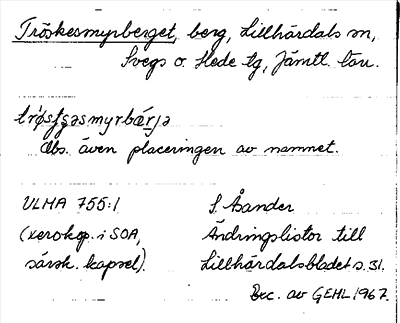 Tröskesmyrberget, berg, Lillhärdals sn,
Svegs o. Hede tg, Jämtl. län.
Obs. även placeringen av namnet.
ULMA 755:1 S. Åsander
(xerokop. i SOA, Ändringslistor till
särsk. kapsel). Lillhärdalsbladet s. 31.
Exc. av GEHL 1967.